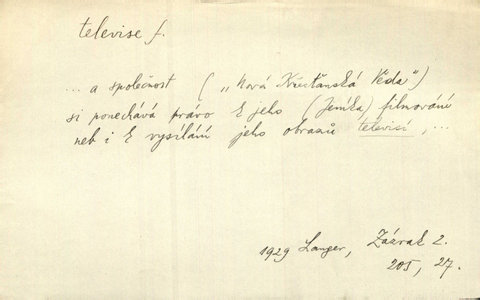 televise f.
... a společnost („Nová Křesťanská Věda")
si ponechává právo k jeho (Jeníka) filmování
neb i k vysílání jeho obrazů televisí, ...
1929 Langer, Zázrak 2.
205, 27.